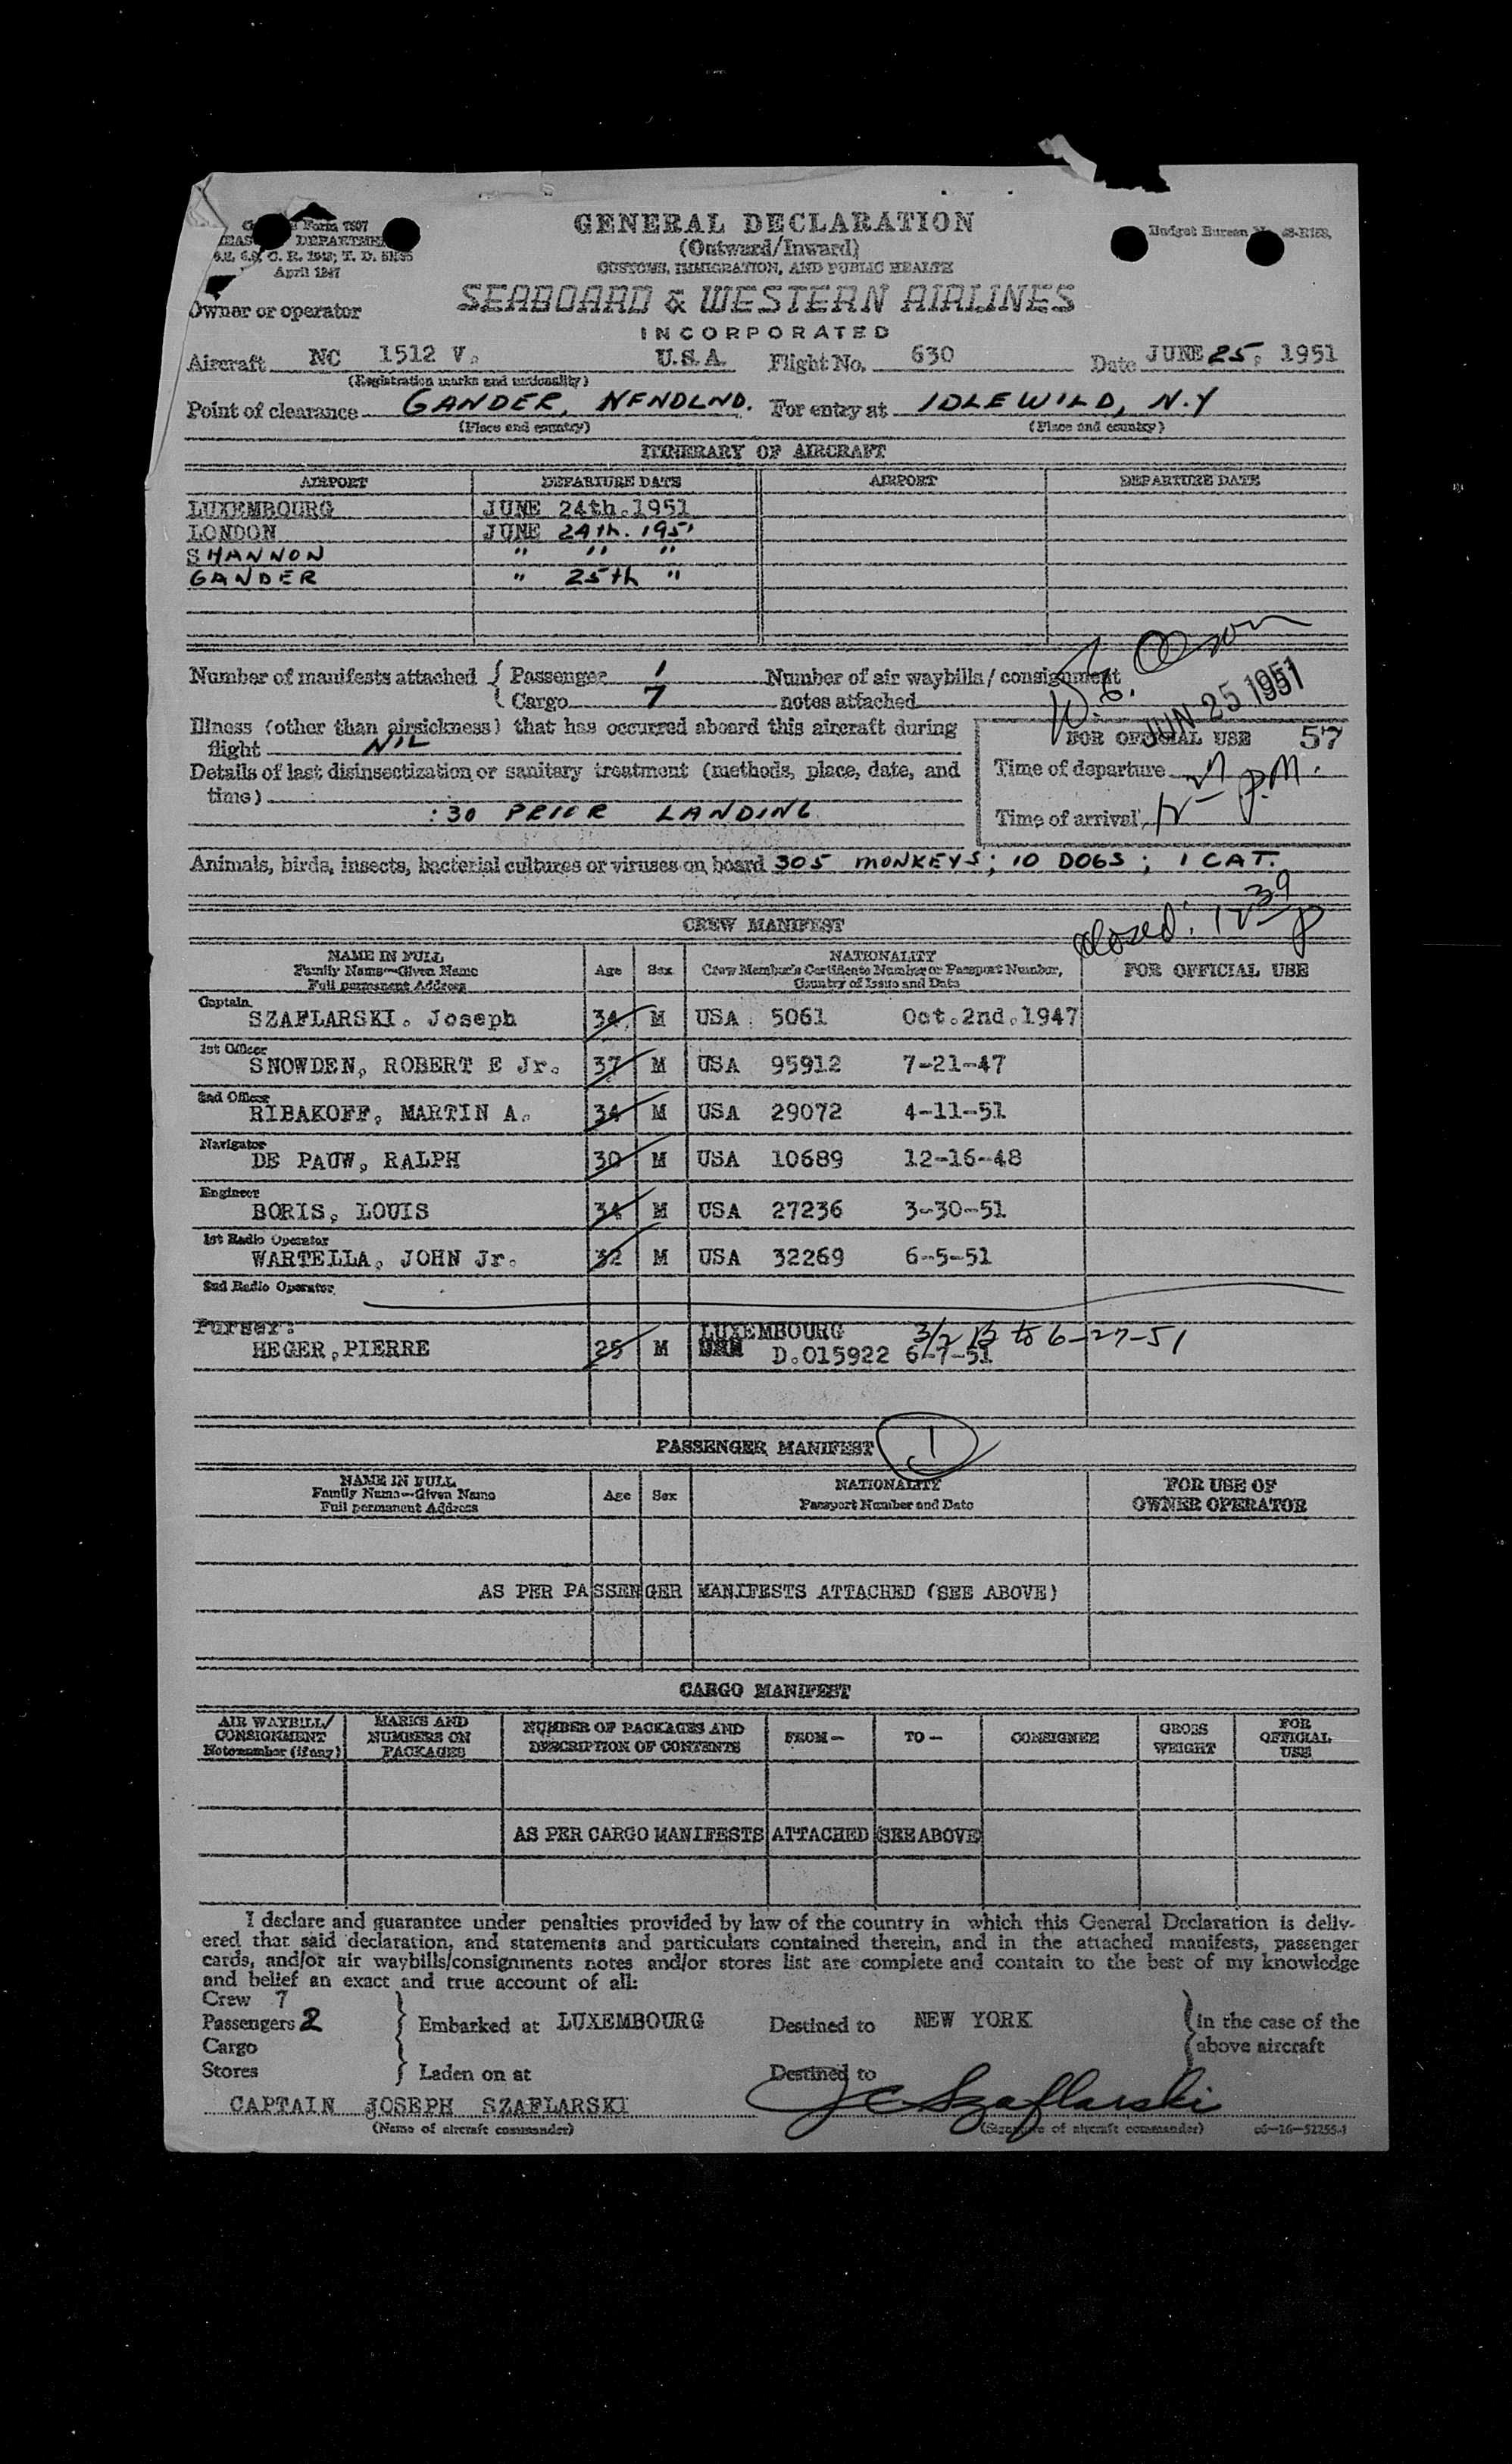 Form 7507
DEPARTMENT
C. R. 1943; T. D.
April 1947
GENERAL DECLARATION
(Outward/Inward)
CUSTOMS, IMMIGRATION, AND PUBLIC HEALTH
Budget Bureau
Owner or operator
SEABOARD & WESTERN AIRLINES
INCORPORATED
Aircraft NC 1512 V. U.S.A. Flight No. 630 Date JUNE 25, 1951
(Registration marks and nationality)
Point of clearance GANDER, NFNDLND. For entry at IDLEWILD, N.Y
(Place and country) (Place and country)
ITINERARY OF AIRCRAFT
AIRPORT DEPARTURE DATE AIRPORT DEPARTURE DATE
LUXEMBOURG JUNE 24th.1951
LONDON JUNE 24th. 1951
SHANNON " " "
GANDER " 25th "
Number of manifests attached { Passenger 1 Number of air waybills / consignment
{ Cargo 7 notes attached
JUN 25 1951
Illness (other than airsickness) that has occurred aboard this aircraft during
flight NIL
FOR OFFICIAL USE 57
Details of last disinsectization or sanitary treatment (methods, place, date, and
time) :30 PRIOR LANDING
Time of departure
Time of arrival P.M.
Animals, birds, insects, bacterial cultures or viruses on board 305 MONKEYS; 10 DOGS; 1 CAT.
closed: 12 39 P
CREW MANIFEST
NAME IN FULL
Family Name—Given Name
Full permanent Address
Age Sex
NATIONALITY
Crew Member's Certificate Number or Passport Number,
Country of Issue and Date
FOR OFFICIAL USE
Captain
SZAFLARSKI. Joseph 34 M USA 5061 Oct.2nd.1947
1st Officer
SNOWDEN, ROBERT E Jr. 37 M USA 95912 7-21-47
2nd Officer
RIBAKOFF, MARTIN A. 34 M USA 29072 4-11-51
Navigator
DE PAUW, RALPH 30 M USA 10689 12-16-48
Engineer
BORIS, LOUIS 34 M USA 27236 3-30-51
1st Radio Operator
WARTELLA, JOHN Jr. 32 M USA 32269 6-5-51
2nd Radio Operator
Purser:
HEGER,PIERRE 25 M LUXEMBOURG
D.015922 6-7-51
3/2 B to 6-27-51
PASSENGER MANIFEST 1
NAME IN FULL
Family Name—Given Name
Full permanent Address
Age Sex
NATIONALITY
Passport Number and Date
FOR USE OF
OWNER OPERATOR
AS PER PASSENGER MANIFESTS ATTACHED (SEE ABOVE)
CARGO MANIFEST
AIR WAYBILL/
CONSIGNMENT
Note number (if any)
MARKS AND
NUMBERS ON
PACKAGES
NUMBER OF PACKAGES AND
DESCRIPTION OF CONTENTS
FROM—
TO—
CONSIGNEE
GROSS
WEIGHT
FOR
OFFICIAL
USE
AS PER CARGO MANIFESTS ATTACHED (SEE ABOVE
I declare and guarantee under penalties provided by law of the country in which this General Declaration is deliv-
ered that said declaration, and statements and particulars contained therein, and in the attached manifests, passenger
cards, and/or air waybills/consignments notes and/or stores list are complete and contain to the best of my knowledge
and belief an exact and true account of all:
Crew 7
Passengers 2 } Embarked at LUXEMBOURG Destined to NEW YORK { In the case of the
Cargo above aircraft
Stores } Laden on at Destined to
CAPTAIN JOSEPH SZAFLARSKI JCSzaflarski
(Name of aircraft commander) (Signature of aircraft commander)